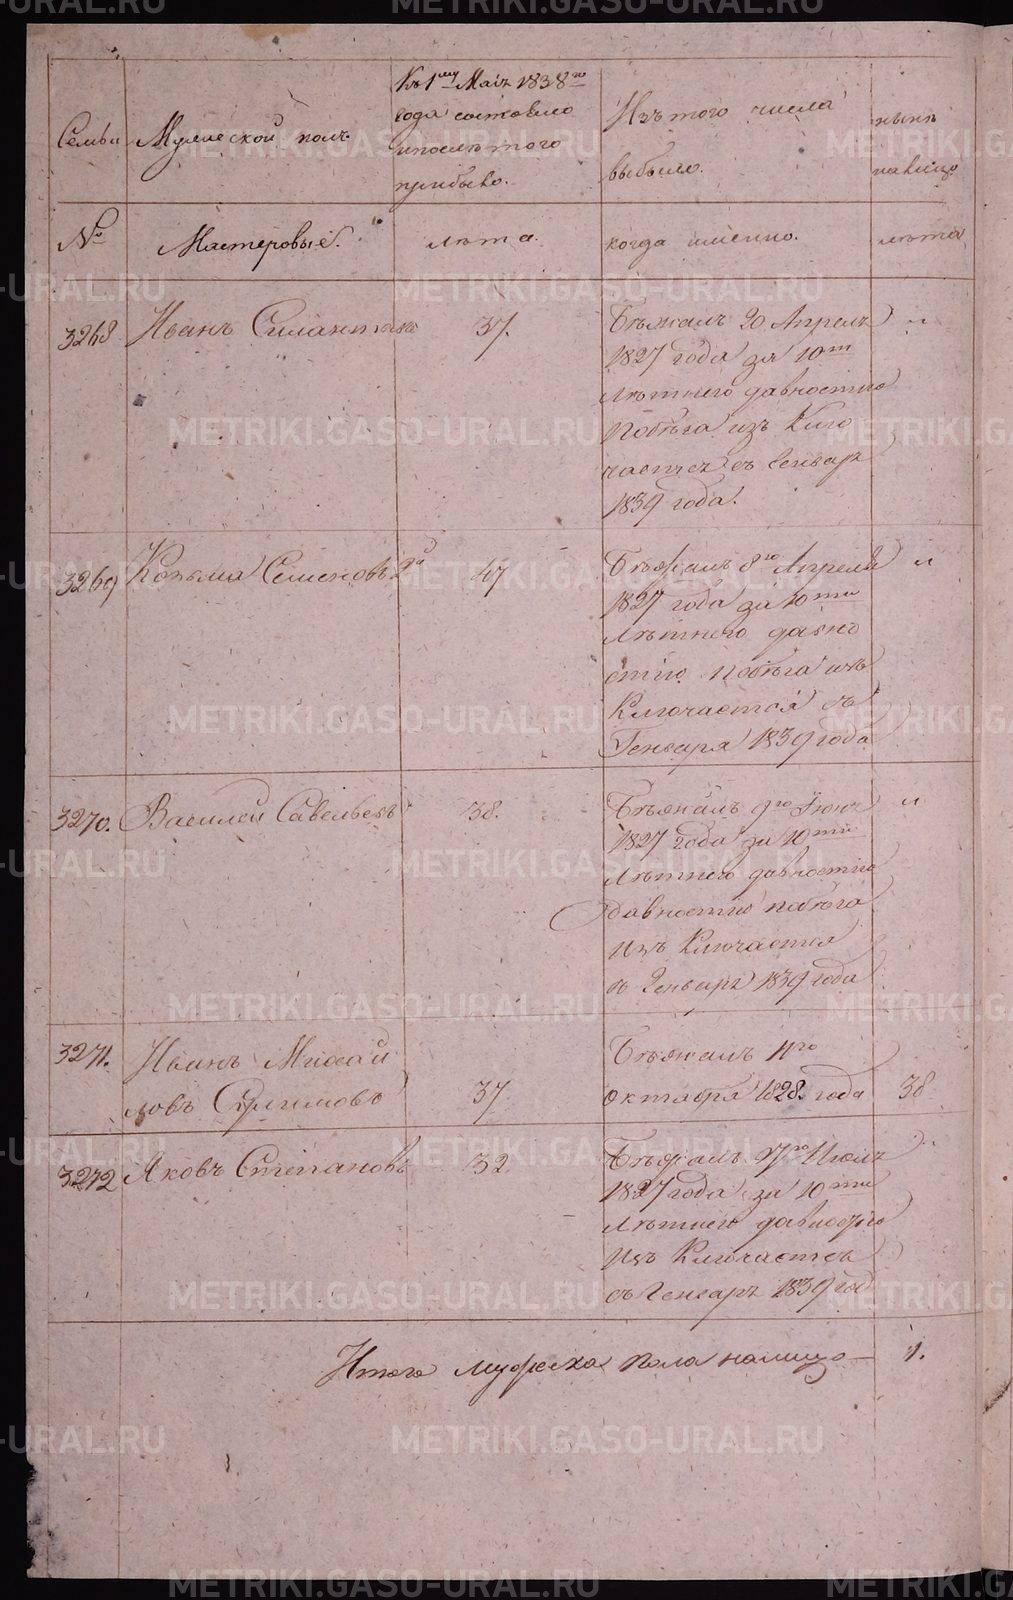 Семьи
Мужеской полъ
Къ 1му Маія 1838го
года состояло
ипослѣ того
прибыло.
Изъ того числа
выбыло.
нынѣ
налицо
№
Мастеровые.
лѣта.
когда имянно.
лѣта
3268
Иванъ Силантьевъ
37.
Бѣжалъ 20 Апреля
1827 года за 10ти
лѣтнею давностію
побѣга изъ Клю
чается съ Генваря
1839 года.
"
3269
Козьма Семеновъ 2й
47
Бѣжалъ 8го Апреля
1827 года за 10ти
лѣтнею давно
стію побѣга изъ
Ключается съ
Генваря 1839 года
"
3270.
Василей Савельевъ
38.
Бѣжалъ 9го Іюня
1827 года за 10ти
лѣтнею давностію
давностію побѣга
изъ Ключается
съ Генваря 1839 года
"
3271.
Иванъ Михай
ловъ
37
Бѣжалъ 11го
октября 1828. года
38
3272
Яковъ Степановъ
32
Бѣжалъ 27го Июля
1827 года за 10ти
лѣтнею давностію
изъ Ключается
съ Генваря 1839 год
"
Итого мужеска пола налицо — 1.
METRIKI.GASO-URAL.RU